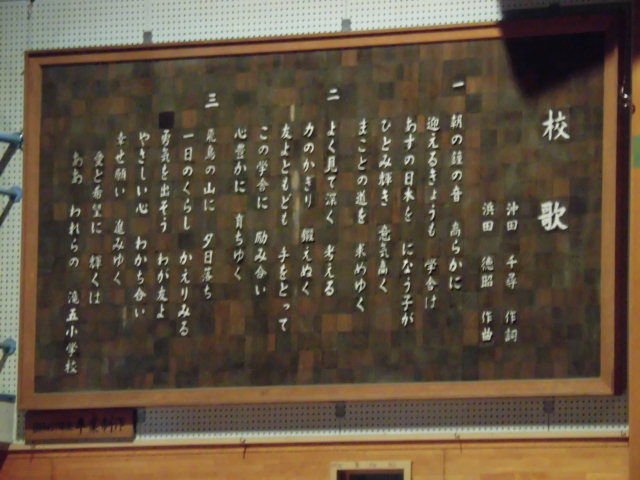 校歌
沖田 千尋 作詞
浜田 徳昭 作曲
一 朝の鐘の音 高らかに
迎えるきょうも 学舎は
あすの日本を になう子が
ひとみ輝き 意気高く
まことの道を 求めゆく
二 よく見て深く 考える
力のかぎり 鍛えぬく
友よともども 手をとって
この学舎に 励み合い
心豊かに 育ちゆく
三 飛鳥の山に 夕日落ち
一日のくらし かえりみる
勇気を出そう わが友よ
やさしい心 わかち合い
幸せ願い 進みゆく
愛と希望に 輝くは
ああ われらの 滝五小学校
卒業制作